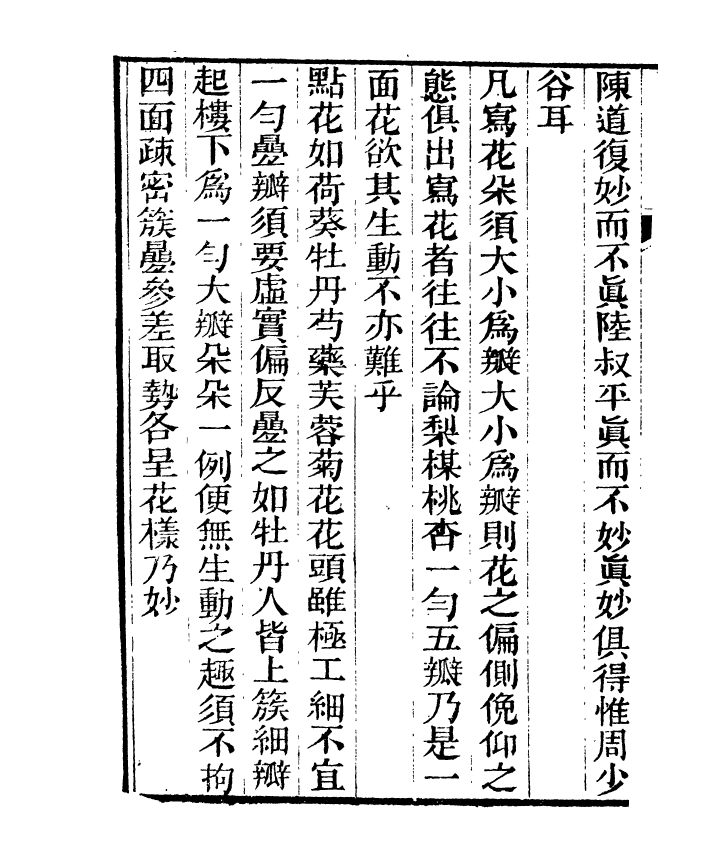 陳道復妙而不眞陸叔平眞而不妙眞妙俱得惟周少
谷耳
凡寫花朵須大小爲瓣大小爲瓣則花之偏側俛仰之
態俱出寫花者往往不論梨楳桃杏一勻五瓣乃是一
面花欲其生動不亦難乎
點花如荷葵牡丹芍藥芙蓉菊花花頭雖極工細不宜
一勻疊瓣須要虛實偏反疊之如牡丹人皆上簇細瓣
起樓下爲一勻大瓣朵朵一例便無生動之趣須不拘
四面疎密簇疊參差取勢各呈花樣乃妙